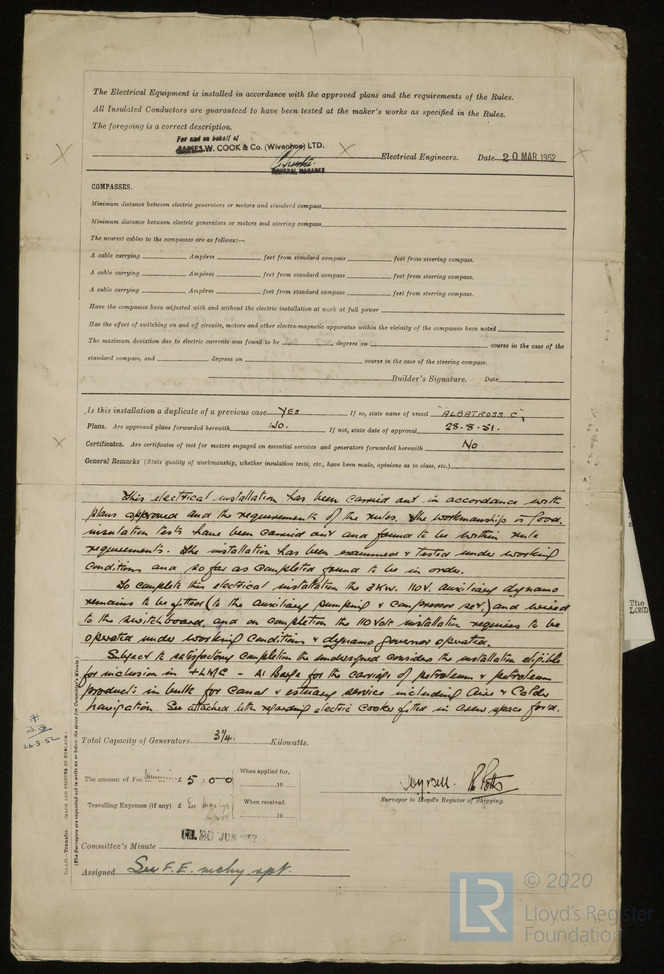 The Electrical Equipment is installed in accordance with the approved plans and the requirements of the Rules.
All Insulated Conductors are guaranteed to have been tested at the maker's works as specified in the Rules.
The foregoing is a correct description.
For and on behalf of
JAMES W. COOK & Co. (Wivenhoe) LTD.
GENERAL MANAGER
Electrical Engineers. Date 20 MAR 1952
COMPASSES.
Minimum distance between electric generators or motors and standard compass
Minimum distance between electric generators or motors and steering compass
The nearest cables to the compasses are as follows:—
A cable carrying Ampères feet from standard compass feet from steering compass.
A cable carrying Ampères feet from standard compass feet from steering compass.
A cable carrying Ampères feet from standard compass feet from steering compass.
Have the compasses been adjusted with and without the electric installation at work at full power
Has the effect of switching on and off circuits, motors and other electro-magnetic apparatus within the vicinity of the compasses been noted
The maximum deviation due to electric currents was found to be degrees on course in the case of the
standard compass, and degrees on course in the case of the steering compass.
Builder's Signature. Date
Is this installation a duplicate of a previous case YES If so, state name of vessel "ALBATROSS C",
Plans. Are approved plans forwarded herewith No. If not, state date of approval 28-8-51.
Certificates. Are certificates of test for motors engaged on essential services and generators forwarded herewith No
General Remarks (State quality of workmanship, whether insulation tests, etc., have been made, opinions as to class, etc.)
This electrical installation has been carried out in accordance with
plans approved and the requirements of the rules. The workmanship is good,
insulation tests have been carried out and found to be within rule
requirements. The installation has been examined & tested under working
conditions and so far as completed found to be in order.
To complete this electrical installation the 3Kw. 110V. auxiliary dynamo
remains to be fitted (to the auxiliary pumping & compressor set) and wired
to the switchboard, and on completion the 110 volt installation requires to be
operated under working conditions & dynamo governor operated.
Subject to satisfactory completion the undersigned considers the installation eligible
for inclusion in +LMC - A1 Barge for the carriage of petroleum & petroleum
products in bulk for canal & estuary service including Aire & Calder
navigation. See attached letter regarding electric cooker fitted in crew space for'd.
Total Capacity of Generators 3¼ Kilowatts.
The amount of Fee £ 5 : 0 0 When applied for, 19
Travelling Expenses (if any) £ When received. 19
R. Potts
Surveyor to Lloyd's Register of Shipping.
FRI. 20 JUN 1952
Committee's Minute
Assigned See F.E. mchy. rpt.
26.5.52
Transfer. (MADE AND PRINTED IN ENGLAND.)
(The Surveyors are requested not to write on or below the space for Committee's Minute.)
The
LOND
LR
© 2020
Lloyd's Register
Foundation